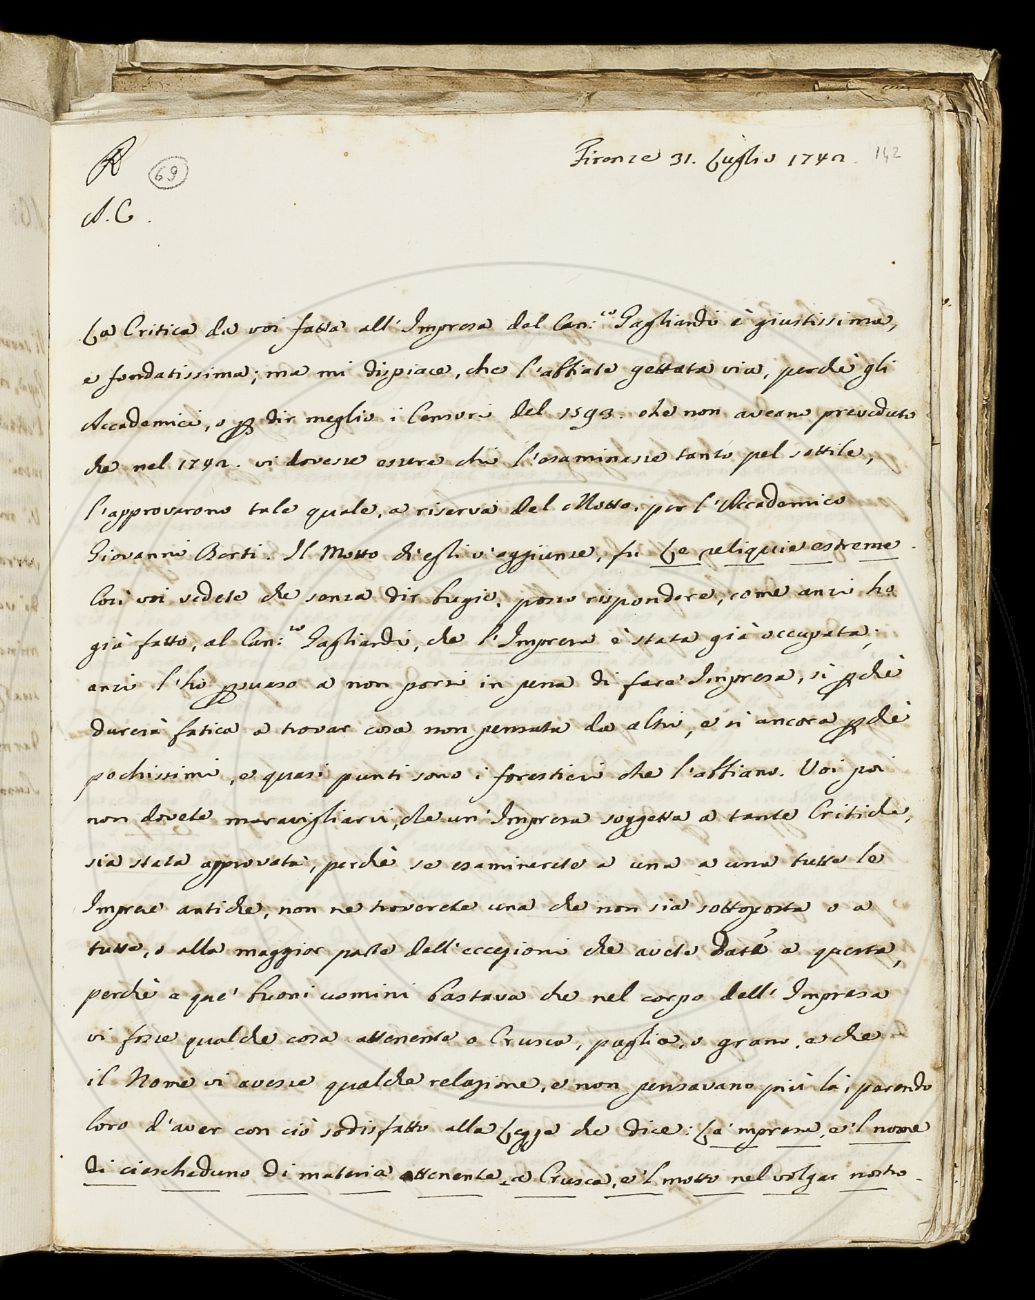 69
Firenze 31. Luglio 1742. 142
A. C.
La Critica da voi fatta all'Impresa del Can.co Gagliardi è giustissima,
e fondatissima; ma mi dispiace, che l'abbiate gettata via, perchè gli
Accademici, o p dir meglio i Censori del 1593. che non aveano preveduto
che nel 1742. vi dovesse essere chi l'esaminasse tanto pel sottile,
l'approvarono tale quale, a riserva del Motto, per l'Accademico
Giovanni Berti. Il Motto ch'egli v'aggiunse, fu Le reliquie estreme.
Così voi vedete che senza dir bugie, posso rispondere, come anzi ho
già fatto, al Can.co Gagliardi, che l'Impresa è stata già occupata;
anzi l'ho psuaso a non porsi in pena di fare Impresa, sì pchè
durerà fatica a trovar cosa non pensata da altri, e sì ancora pchè
pochissimi, e quasi punti sono i forestieri che l'abbiano. Voi poi
non dovete maravigliarvi, che un'Impresa soggetta a tante Critiche,
sia stata approvata, perchè se esaminerete a una a una tutte le
Imprese antiche, non ne troverete una che non sia sottoposta o a
tutte, o alla maggior parte dell'eccezioni che avete date a questa,
perchè a que' buoni uomini bastava che nel corpo dell'Impresa
vi fosse qualche cosa attenente a Crusca, paglia, o grano, e che
il Nome vi avesse qualche relazione, e non pensavano più là, parendo
loro d'aver con ciò sodisfatto alla Legge che dice: La 'mpresa, e 'l nome
di ciascheduno di materia attenente a Crusca, e 'l motto nel volgar nostro.